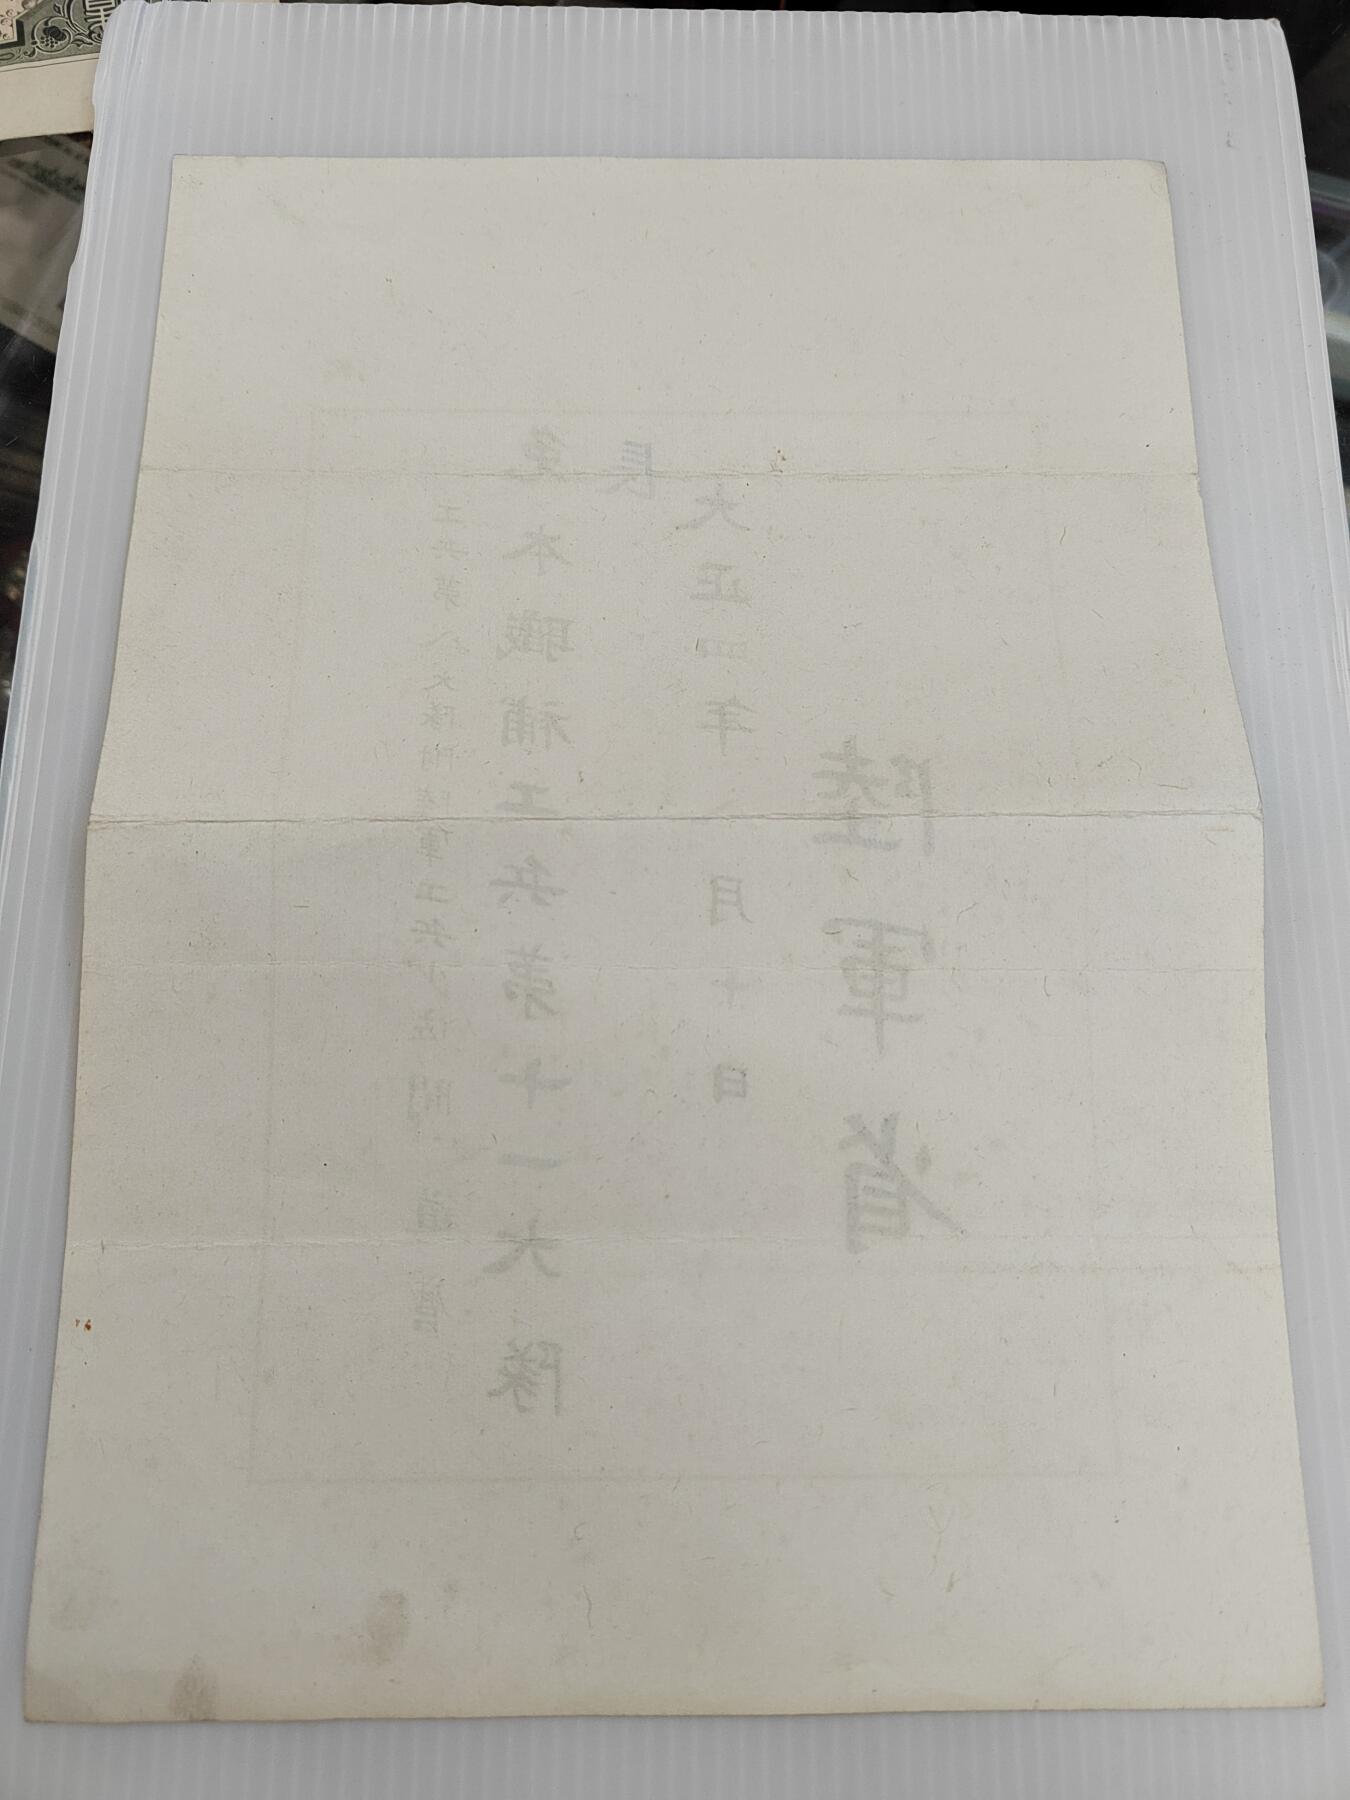 工兵第八大隊附陸軍工兵少佐
免本職補工兵第十一大隊
長
大正四年八月十日
陸軍省